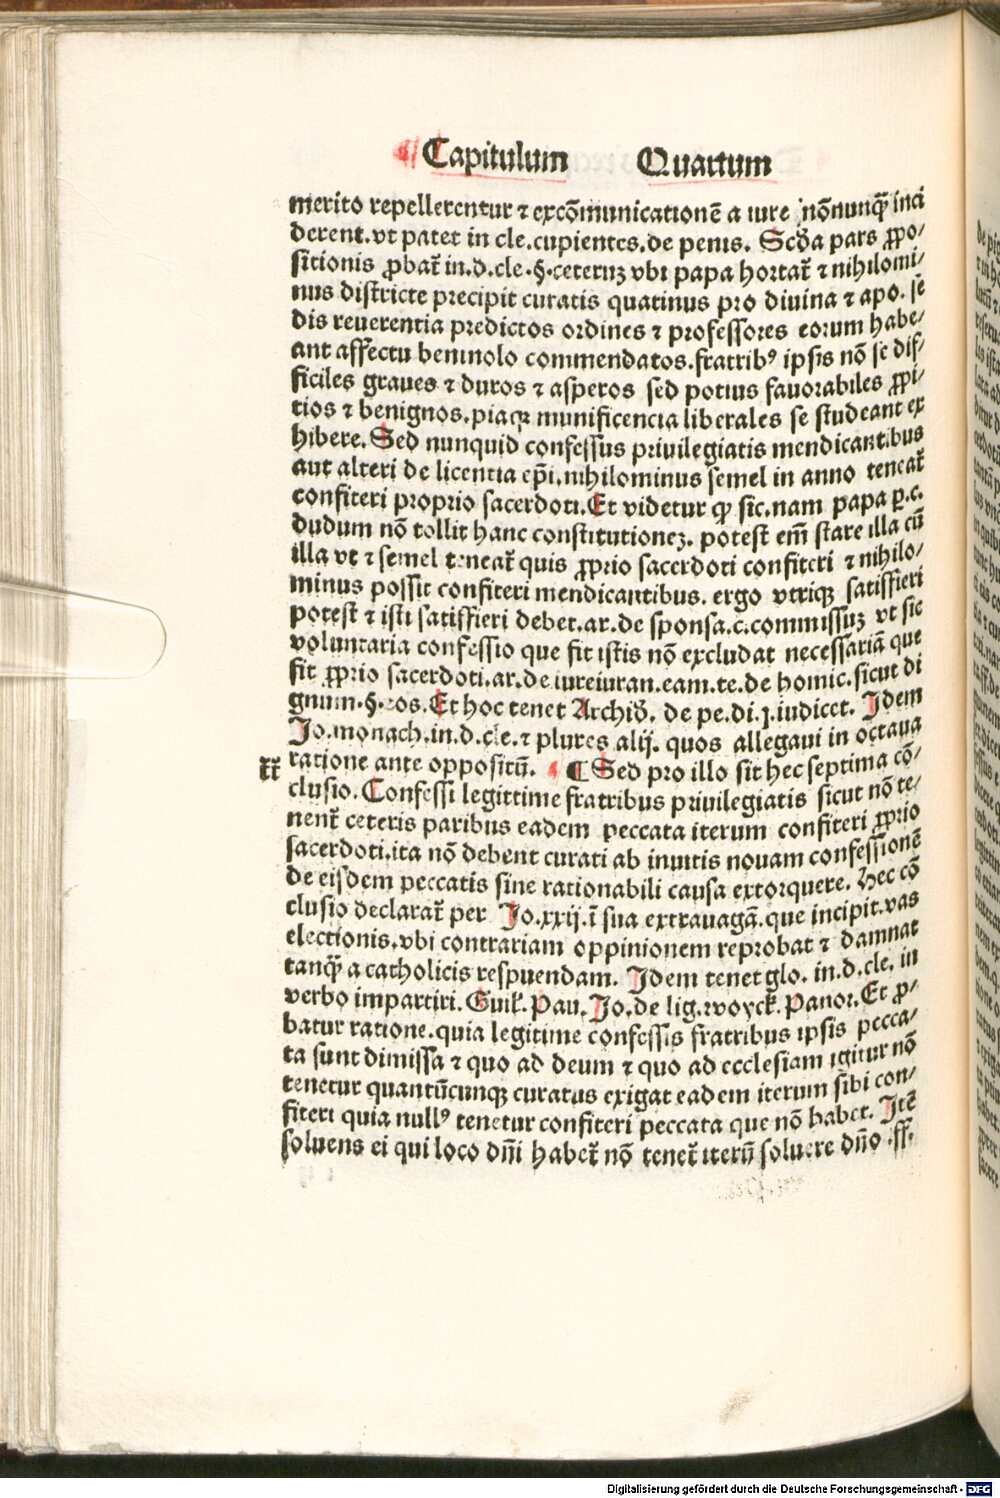 Capitulum Quartum
merito repellerentur ⁊ excōmunicationē a iure nōnunq̄ꝫ inci
derent.vt patet in cle.cupientes.de penis. Scđa pars ꝓpo⸗
sitionis ꝓbat̄ in.d.cle.§.ceteruꝫ vbi papa hortat̄ ⁊ nihilomi⸗
nus districte precipit curatis quatinus pro diuina ⁊ apo. se
dis reuerentia predictos ordines ⁊ professores eorum habe⸗
ant affectu beninolo commendatos.fratribꝰ ipsis nō se dif⸗
ficiles graues ⁊ duros ⁊ asperos sed potius fauorabiles ꝓpi⸗
tios ⁊ benignos.piaqꝫ munificencia liberales se studeant ex
hibere. Sed nunquid confessus priuilegiatis mendicantibus
aut alteri de licentia ep̄i.nihilominus semel in anno teneat̄
confiteri proprio sacerdoti. Et videtur ꝙ sic.nam papa p.c.
dudum nō tollit hanc constitutioneꝫ. potest em̄ stare illa cū
illa vt ⁊ semel teneat̄ quis ꝓprio sacerdoti confiteri ⁊ nihilo⸗
minus possit confiteri mendicantibus. ergo vtriqꝫ satisfieri
potest ⁊ isti satisfieri debet.ar.de sponsa.c.commissuꝫ vt sic
voluntaria confessio que fit istis nō excludat necessariā que
fit ꝓprio sacerdoti.ar.de iureiuran.eam.te.de homic.sicut di
gnum.§.eos. Et hoc tenet Archid̄. de pe.di.j.iudicet. Idem
Jo.monach.in.d.cle.⁊ plures alij. quos allegaui in octaua
ratione ante oppositū. ¶ Sed pro illo sit hec septima cō⸗
clusio. Confessi legittime fratribus priuilegiatis sicut nō te⸗
nent̄ ceteris paribus eadem peccata iterum confiteri ꝓprio
sacerdoti.ita nō debent curati ab inuitis nouam confessionē
de eisdem peccatis sine rationabili causa extorquere. Hec cō
clusio declarat̄ per Jo.xxij.ī sua extrauagā.que incipit.vas
electionis.vbi contrariam oppinionem reprobat ⁊ damnat
tanq̄ꝫ a catholicis respuendam. Idem tenet glo. in.d.cle. in
verbo impartiri. Guil̄. Pau. Jo.de lig.woyck̄. Panor. Et ꝓ⸗
batur ratione.quia legitime confessis fratribus ipsis pecca⸗
ta sunt dimissa ⁊ quo ad deum ⁊ quo ad ecclesiam igitur nō
tenetur quantūcunqꝫ curatus exigat eadem iterum sibi con⸗
fiteri quia nullꝰ tenetur confiteri peccata que nō habet. Itē
soluens ei qui loco dn̄i habet̄ nō tenet̄ iterū soluere dn̄o.ff.
Digitalisierung gefördert durch die Deutsche Forschungsgemeinschaft - DFG